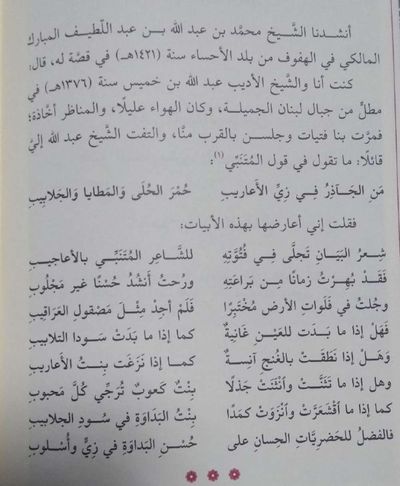 أنشدنا الشَّيخ محمَّد بن عبد الله بن عبد اللَّطيف المبارك
المالكي في الهفوف من بلد الأحساء سنة (١٤٢١هـ) في قصَّة له، قال:
كنت أنا والشَّيخ الأديب عبد الله بن خميس سنة (١٣٧٦هـ) في
مطلٍّ من جبال لبنان الجميلة، وكان الهواء عليلًا، والمناظر أخَّاذة؛
فمرَّت بنا فتيات وجلسن بالقرب منَّا، والتفت الشَّيخ عبد الله إليَّ
قائلًا: ما تقول في قول المُتَنَبِّي(١):
مَنِ الجَآذِرُ فِي زِيِّ الأَعاريبِ حُمْرَ الحُلَى وَالمَطايا وَالجَلابيبِ
فقلت إني أعارضها بهذه الأبيات:
شِعرُ البَيَانِ تَجلَّى فِي فُتُوَّتِهِ للشَّاعِرِ المُتَنَبِّي بالأعاجيبِ
فَقَدْ بُهِرْتُ زمانًا مِن بَرَاعَتِهِ ورُحتُ أَنشُدُ حُسْنًا غير مَجْلُوبِ
وجُلتُ في فَلَواتِ الأرضِ مُخْتَبِرًا فَلَمْ أجِدْ مِثْلَ مَصْقولِ العَرَاقيبِ
فَهَلْ إذا ما بَدَت للعَيْنِ غَانِيةٌ كما إذا ما بَدَتْ سَودا التلابيبِ
وَهَلْ إذا نَطَقَتْ بالغُنجِ آنِسةٌ كمـا إذا نَزَغَت بِنتُ الأعاريبِ
وهل إذا ما تَثَنَّتْ وانْثَنَتْ جَذَلًا بِنْتٌ كَعوبٌ تُرَجِّي كُلَّ مَحبوبِ
كما إذا ما اقْشَعَرَّتْ وانْزَوَتْ كمَدًا بِنْتُ البَدَاوَةِ في سُودِ الجلابيبِ
فالفضلُ للحَضَرِيَّاتِ الحِسانِ على حُسْنِ البَدَاوةِ في زِيٍّ وأُسْلوبِ